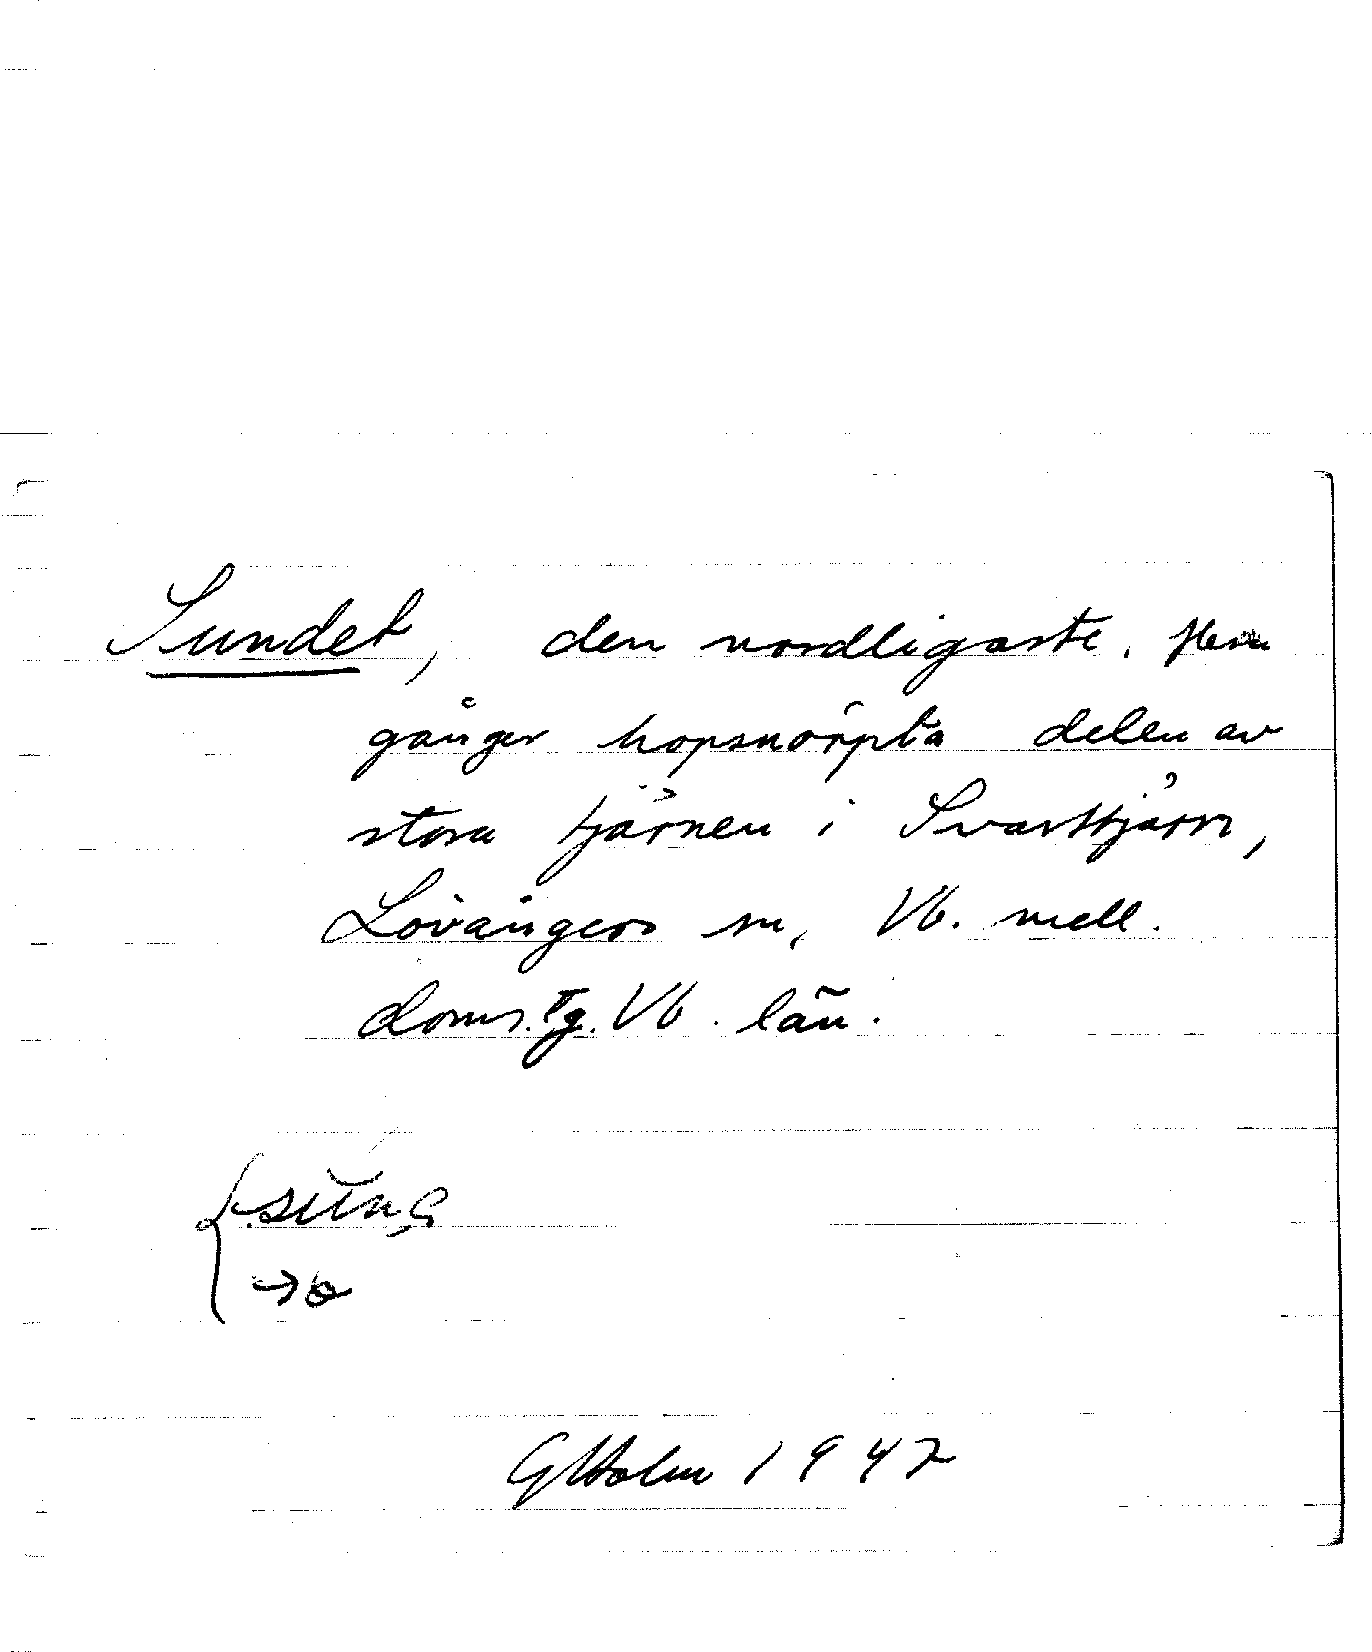 Sundet, den nordligaste, flera
gånger hopsnörpta delen av
stora tjärnen i Svarttjärn,
Lövångers sn, Vb. mell.
doms. tg. Vb. län.
G Holm 1947